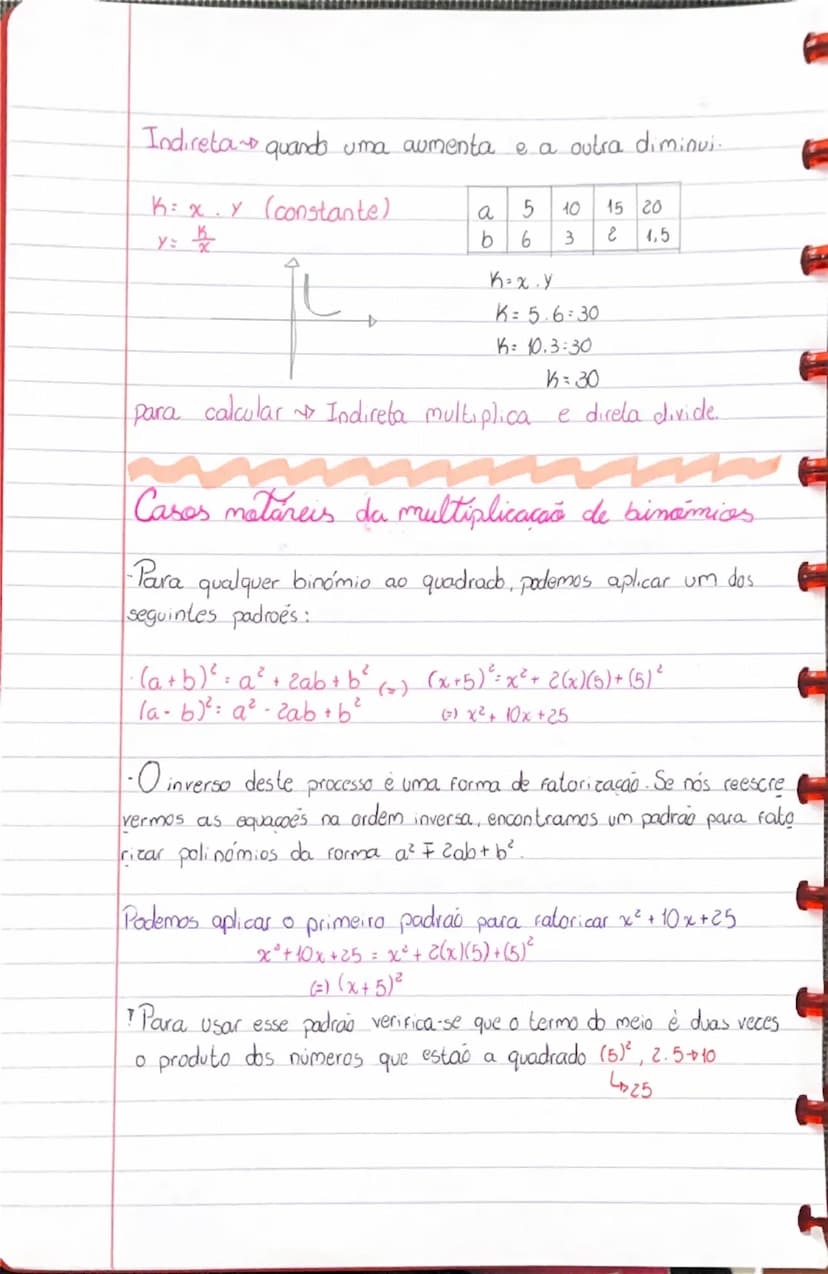 Indireta → quando uma aumenta e a outra diminui.
K = x . y (constante)
y = K/x
a 5 10 15 20
b 6 3 2 1,5
K = x . y
K = 5 . 6 = 30
K = 10 . 3 = 30
K = 30
para calcular → Indireta multiplica e direta divide.
Casos notáneis da multiplicação de binómios
- Para qualquer binómio ao quadrado, podemos aplicar um dos
seguintes padroẽs:
(a + b)² = a² + 2ab + b² (=) (x + 5)² = x² + 2(x)(5) + (5)²
(a - b)² = a² - 2ab + b² (=) x² + 10x + 25
- O inverso deste processo é uma forma de fatorização. Se nós reescre
vermos as equaçoẽs na ordem inversa, encontramos um padrão para fato
rizar polinómios da forma a² ∓ 2ab + b².
Podemos aplicar o primeiro padrão para fatoricar x² + 10x + 25
x² + 10x + 25 = x² + 2(x)(5) + (5)²
(=) (x + 5)²
! Para usar esse padrão verifica-se que o termo do meio é duas veces
o produto dos números que estão a quadrado (5)², 2 . 5 → 10
↳ 25